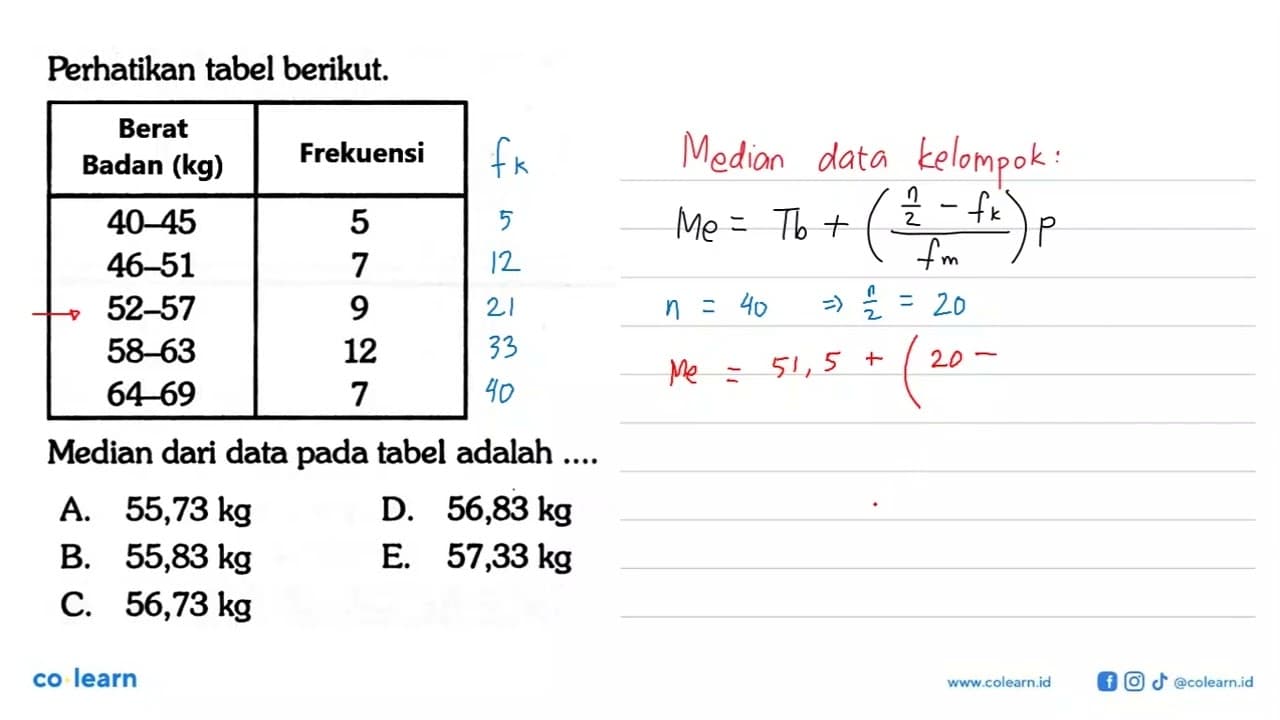 Perhatikan tabel berikut.
Berat Badan (kg) Frekuensi fk
40–45 5 5
46–51 7 12
52–57 9 21
58–63 12 33
64–69 7 40
Median dari data pada tabel adalah ....
A. 55,73 kg D. 56,83 kg
B. 55,83 kg E. 57,33 kg
C. 56,73 kg
Median data kelompok:
Me = Tb + ( (n/2 − fk) / fm ) p
n = 40 ⇒ n/2 = 20
Me = 51,5 + ( 20 −
co learn
www.colearn.id @colearn.id